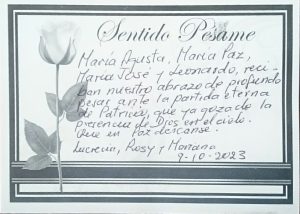 Sentido Pésame
María Agusta, María Paz,
María José y Leonardo, reci-
ban nuestro abrazo de profundo
pesar ante la partida eterna
de Patricia, que ya goza de la
presencia de Dios en el cielo.
Que en Paz descanse.
Lucrecia, Rosy y Mariana
9-10-2023